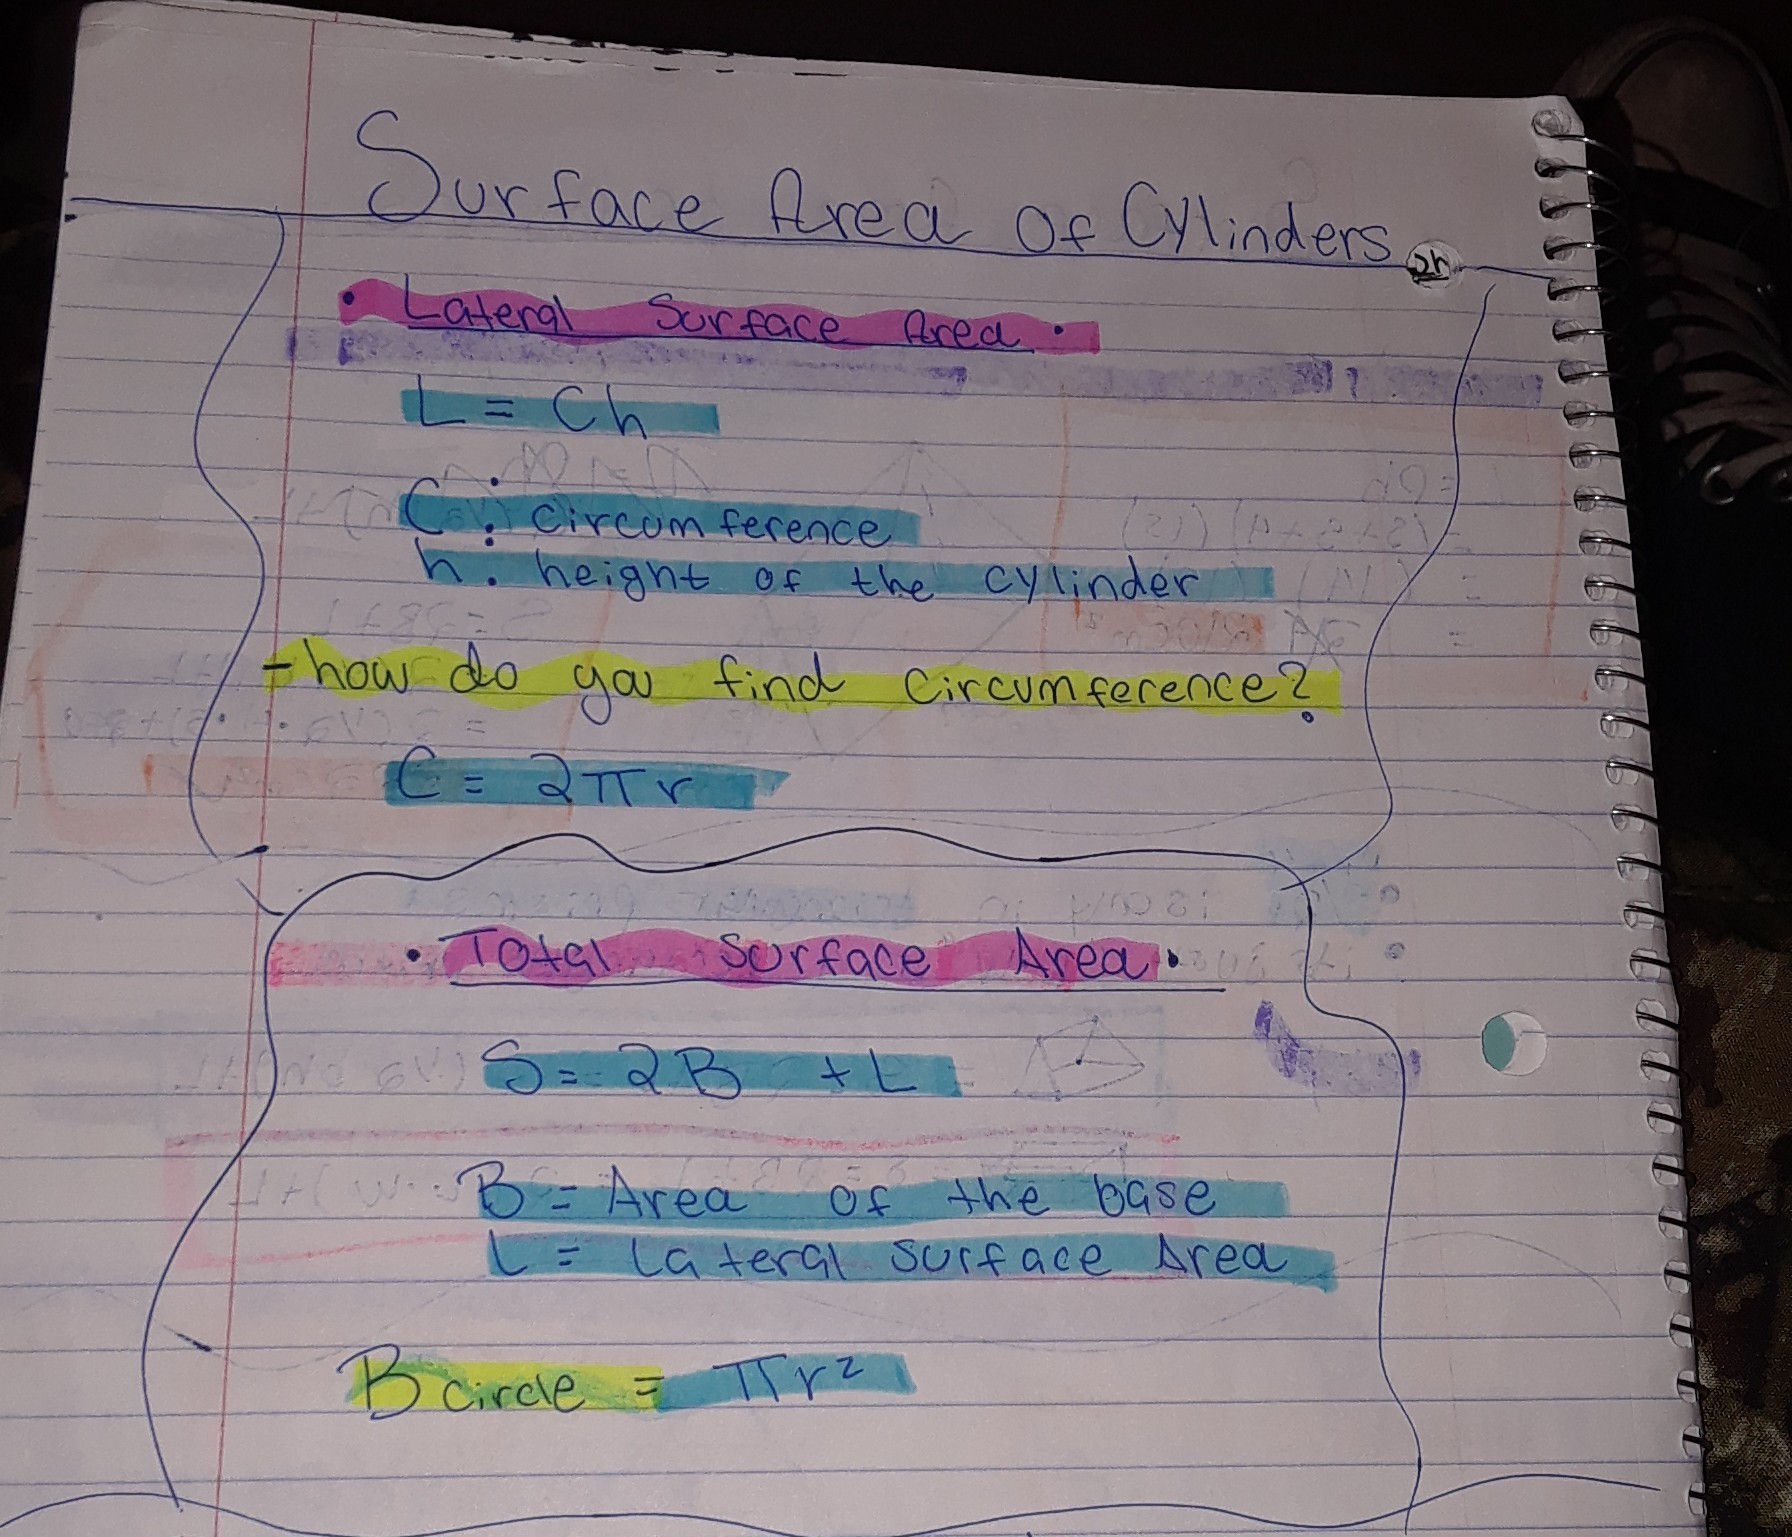 Surface Area Of Cylinders
• Lateral Surface Area •
L = Ch
C : circumference
h : height of the cylinder
- how do you find circumference?
C = 2πr
• Total Surface Area •
S = 2B + L
B = Area of the base
L = Lateral surface Area
B circle = πr²